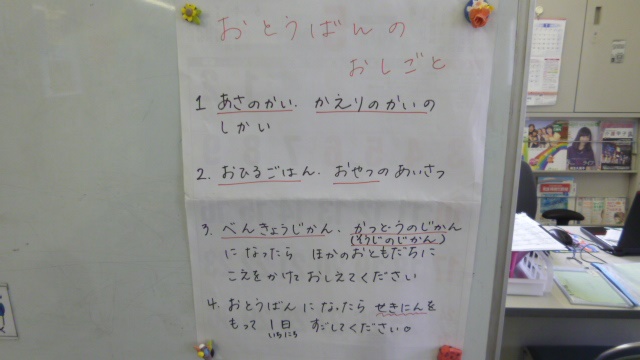 おとうばんの
おしごと
1 あさのかい. かえりのかいの
しかい
2. おひるごはん. おやつのあいさつ
3. べんきょうじかん. かつどうのじかん
(そうじのじかん)
になったら ほかのおともだちに
こえをかけておしえてください
4. おとうばんになったら せきにんを
もって 1日 すごしてください。
いちにち